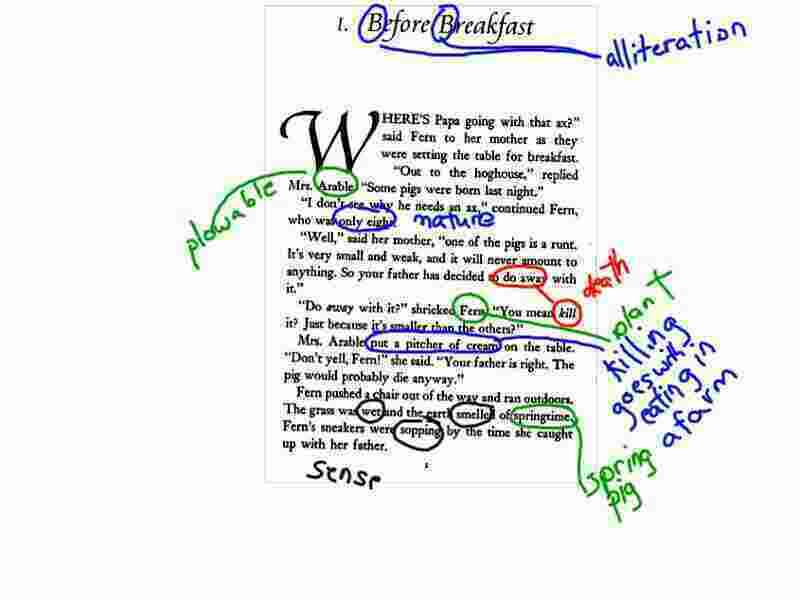 1. Before Breakfast
alliteration
WHERE'S Papa going with that ax?"
said Fern to her mother as they
were setting the table for breakfast.
"Out to the hoghouse," replied
Mrs. Arable. "Some pigs were born last night."
plowable
"I don't see why he needs an ax," continued Fern,
who was only eight.
nature
"Well," said her mother, "one of the pigs is a runt.
It's very small and weak, and it will never amount to
anything. So your father has decided to do away with
it."
death
"Do away with it?" shrieked Fern. "You mean kill
it? Just because it's smaller than the others?"
plant
Mrs. Arable put a pitcher of cream on the table.
"Don't yell, Fern!" she said. "Your father is right. The
pig would probably die anyway."
killing
goes with
eating in
a farm
Fern pushed a chair out of the way and ran outdoors.
The grass was wet and the earth smelled of springtime.
Fern's sneakers were sopping by the time she caught
up with her father.
spring
pig
sense
1